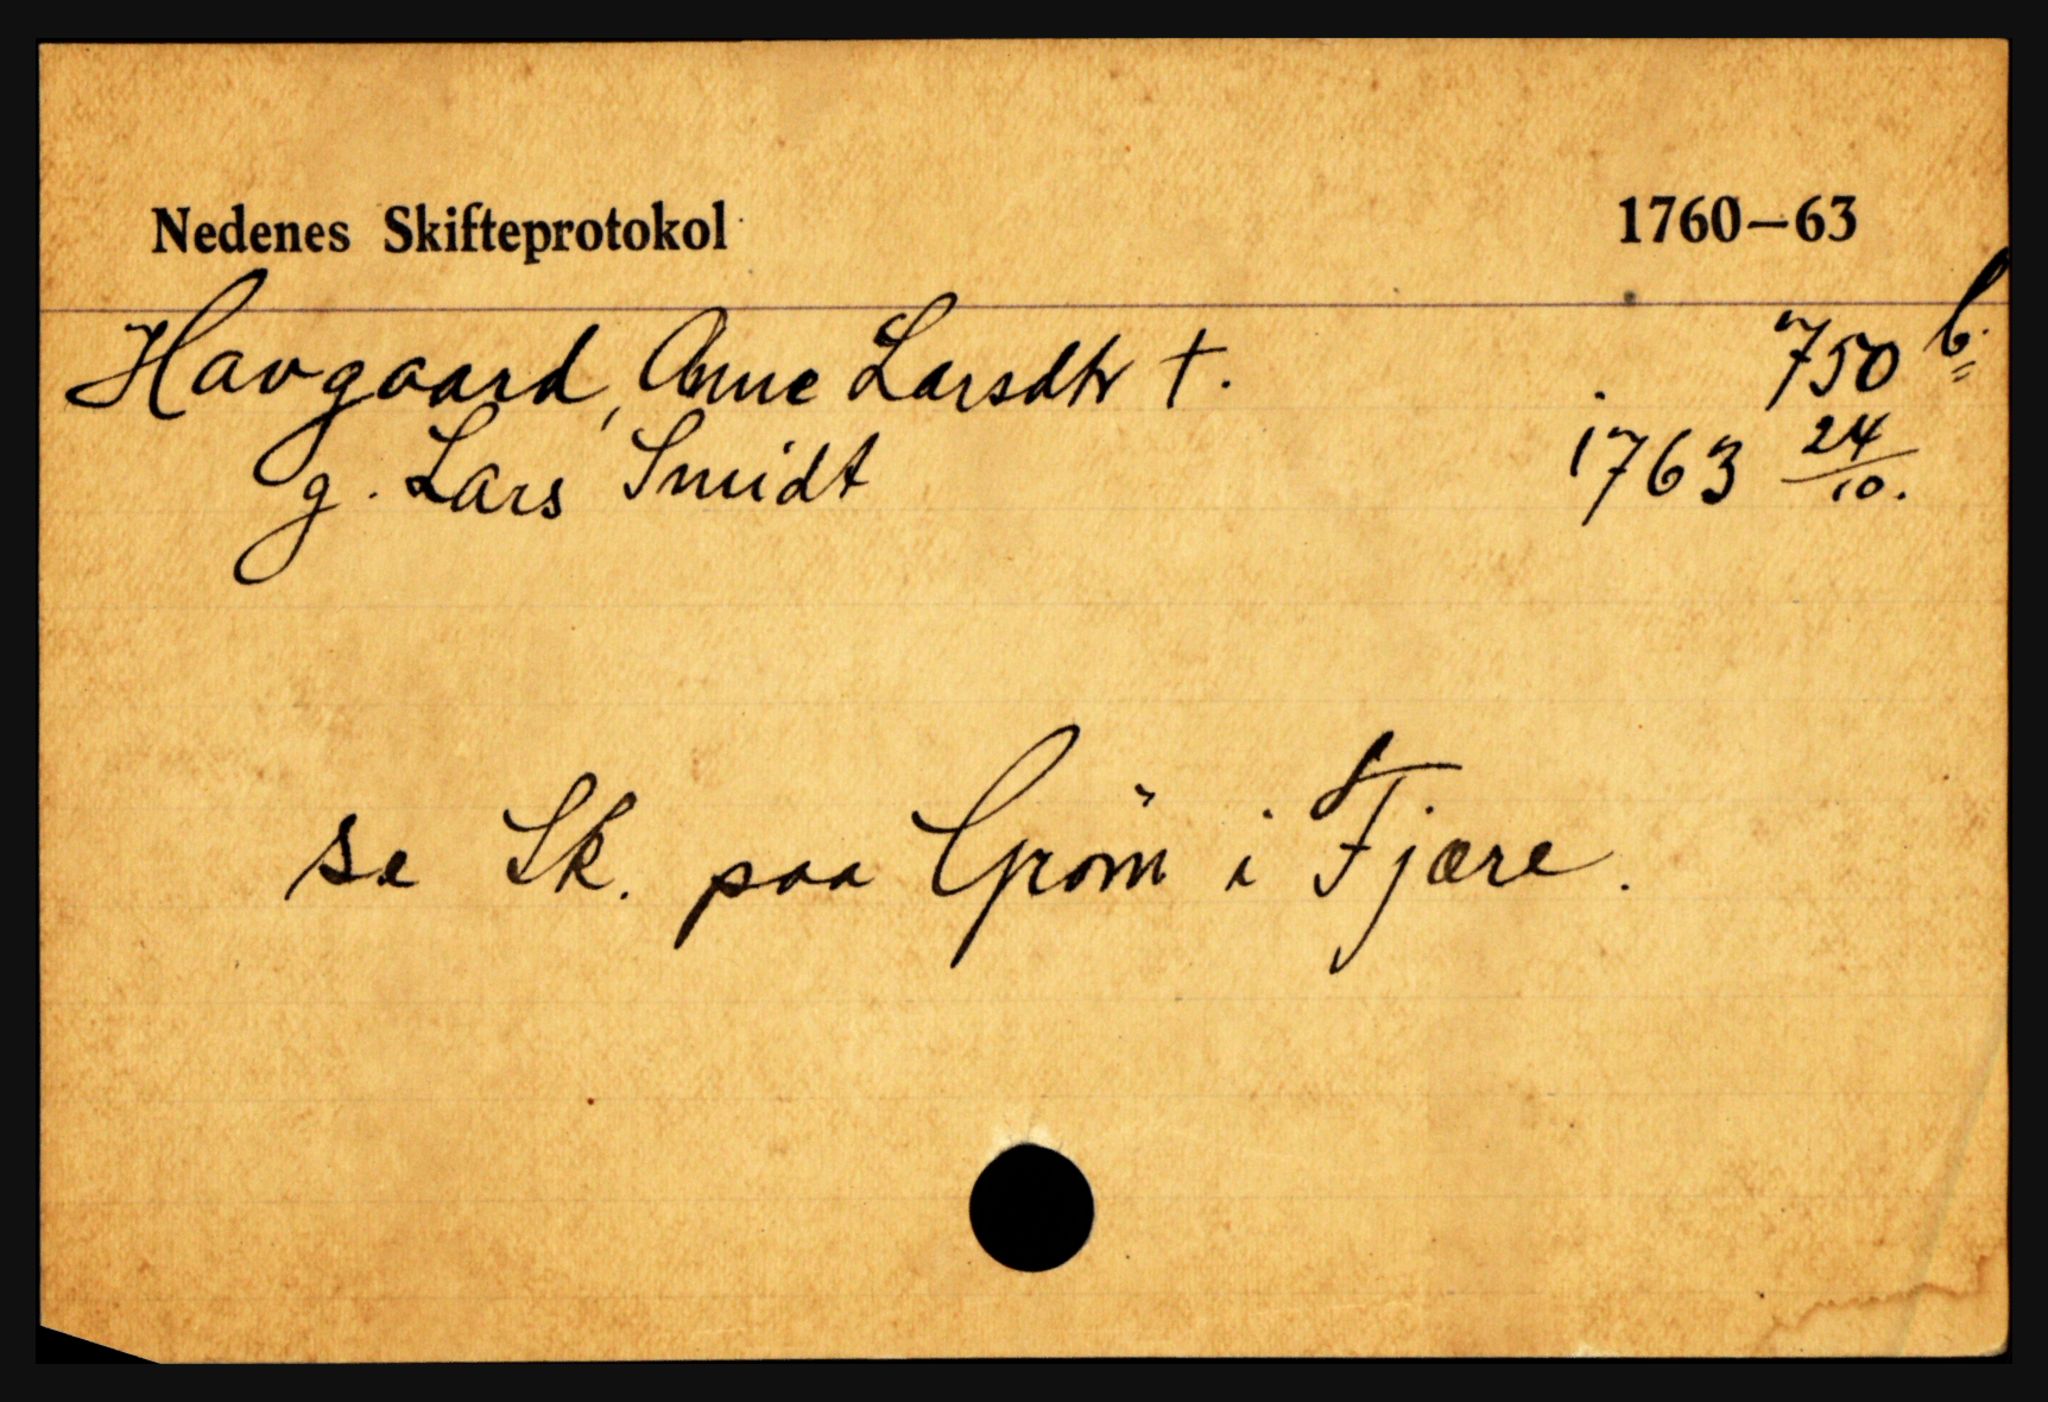 Nedenes Skifteprotokol 1760–63
Havgaard, Anne Larsdtr †. 750 b.
g. Lars Smidt 1763 24/10.
se Sk. paa Grom i Fjære.